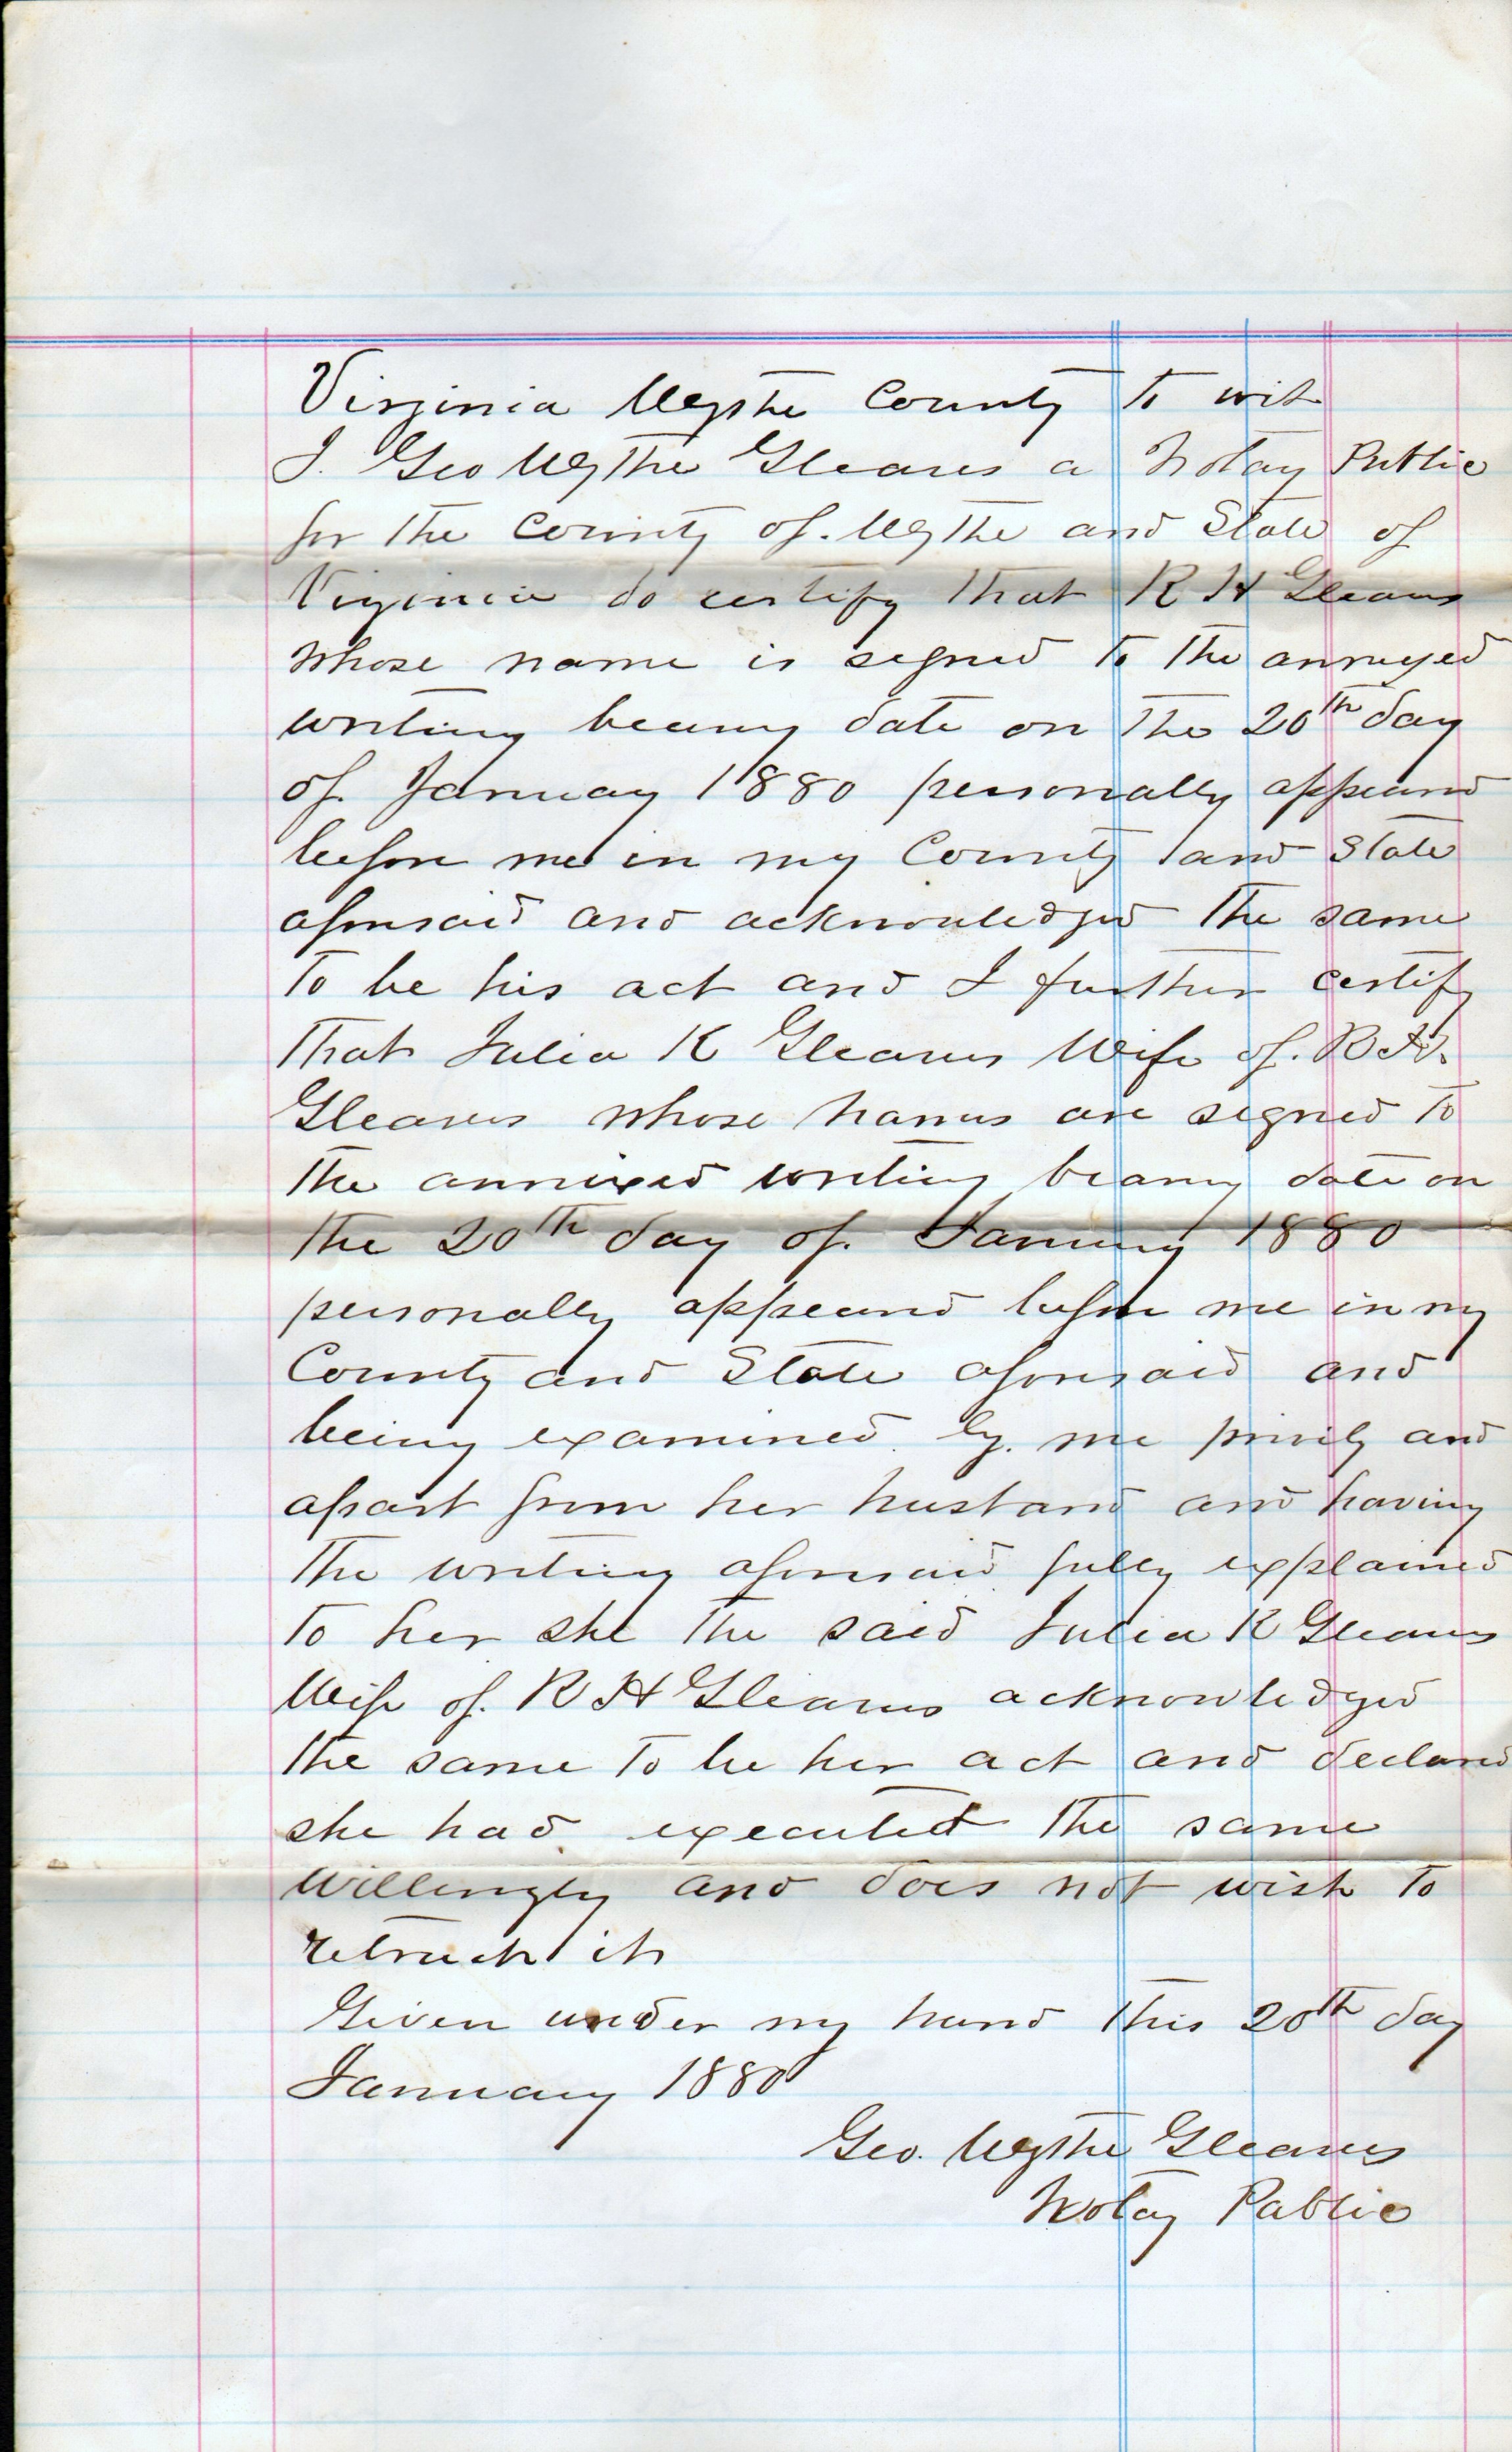 Virginia Wythe County to wit
I. Geo Wythe Gleaves a Notay Public
for the County of. Wythe and State of
Virginia do certify that R H Gleaves
whose name is signed to the annexed
writing bearing date on the 20th day
of January 1880 personally appeared
before me in my County and State
aforesaid and acknowledged the same
to be his act and I further certify
that Julia K Gleaves Wife of. R H.
Gleaves whose names are signed to
the annexed writing bearing date on
the 20th day of. January 1880
personally appeared before me in my
County and State aforesaid and
being examined by. me privily and
apart from her husband and having
the writing aforesaid fully explained
to her she the said Julia K Gleaves
Wife of. R H Gleaves acknowledged
the same to be her act and declared
she had executed the same
willingly and does not wish to
retract it
Given under my hand this 20th day
January 1880
Geo. Wythe Gleaves
Notay Public